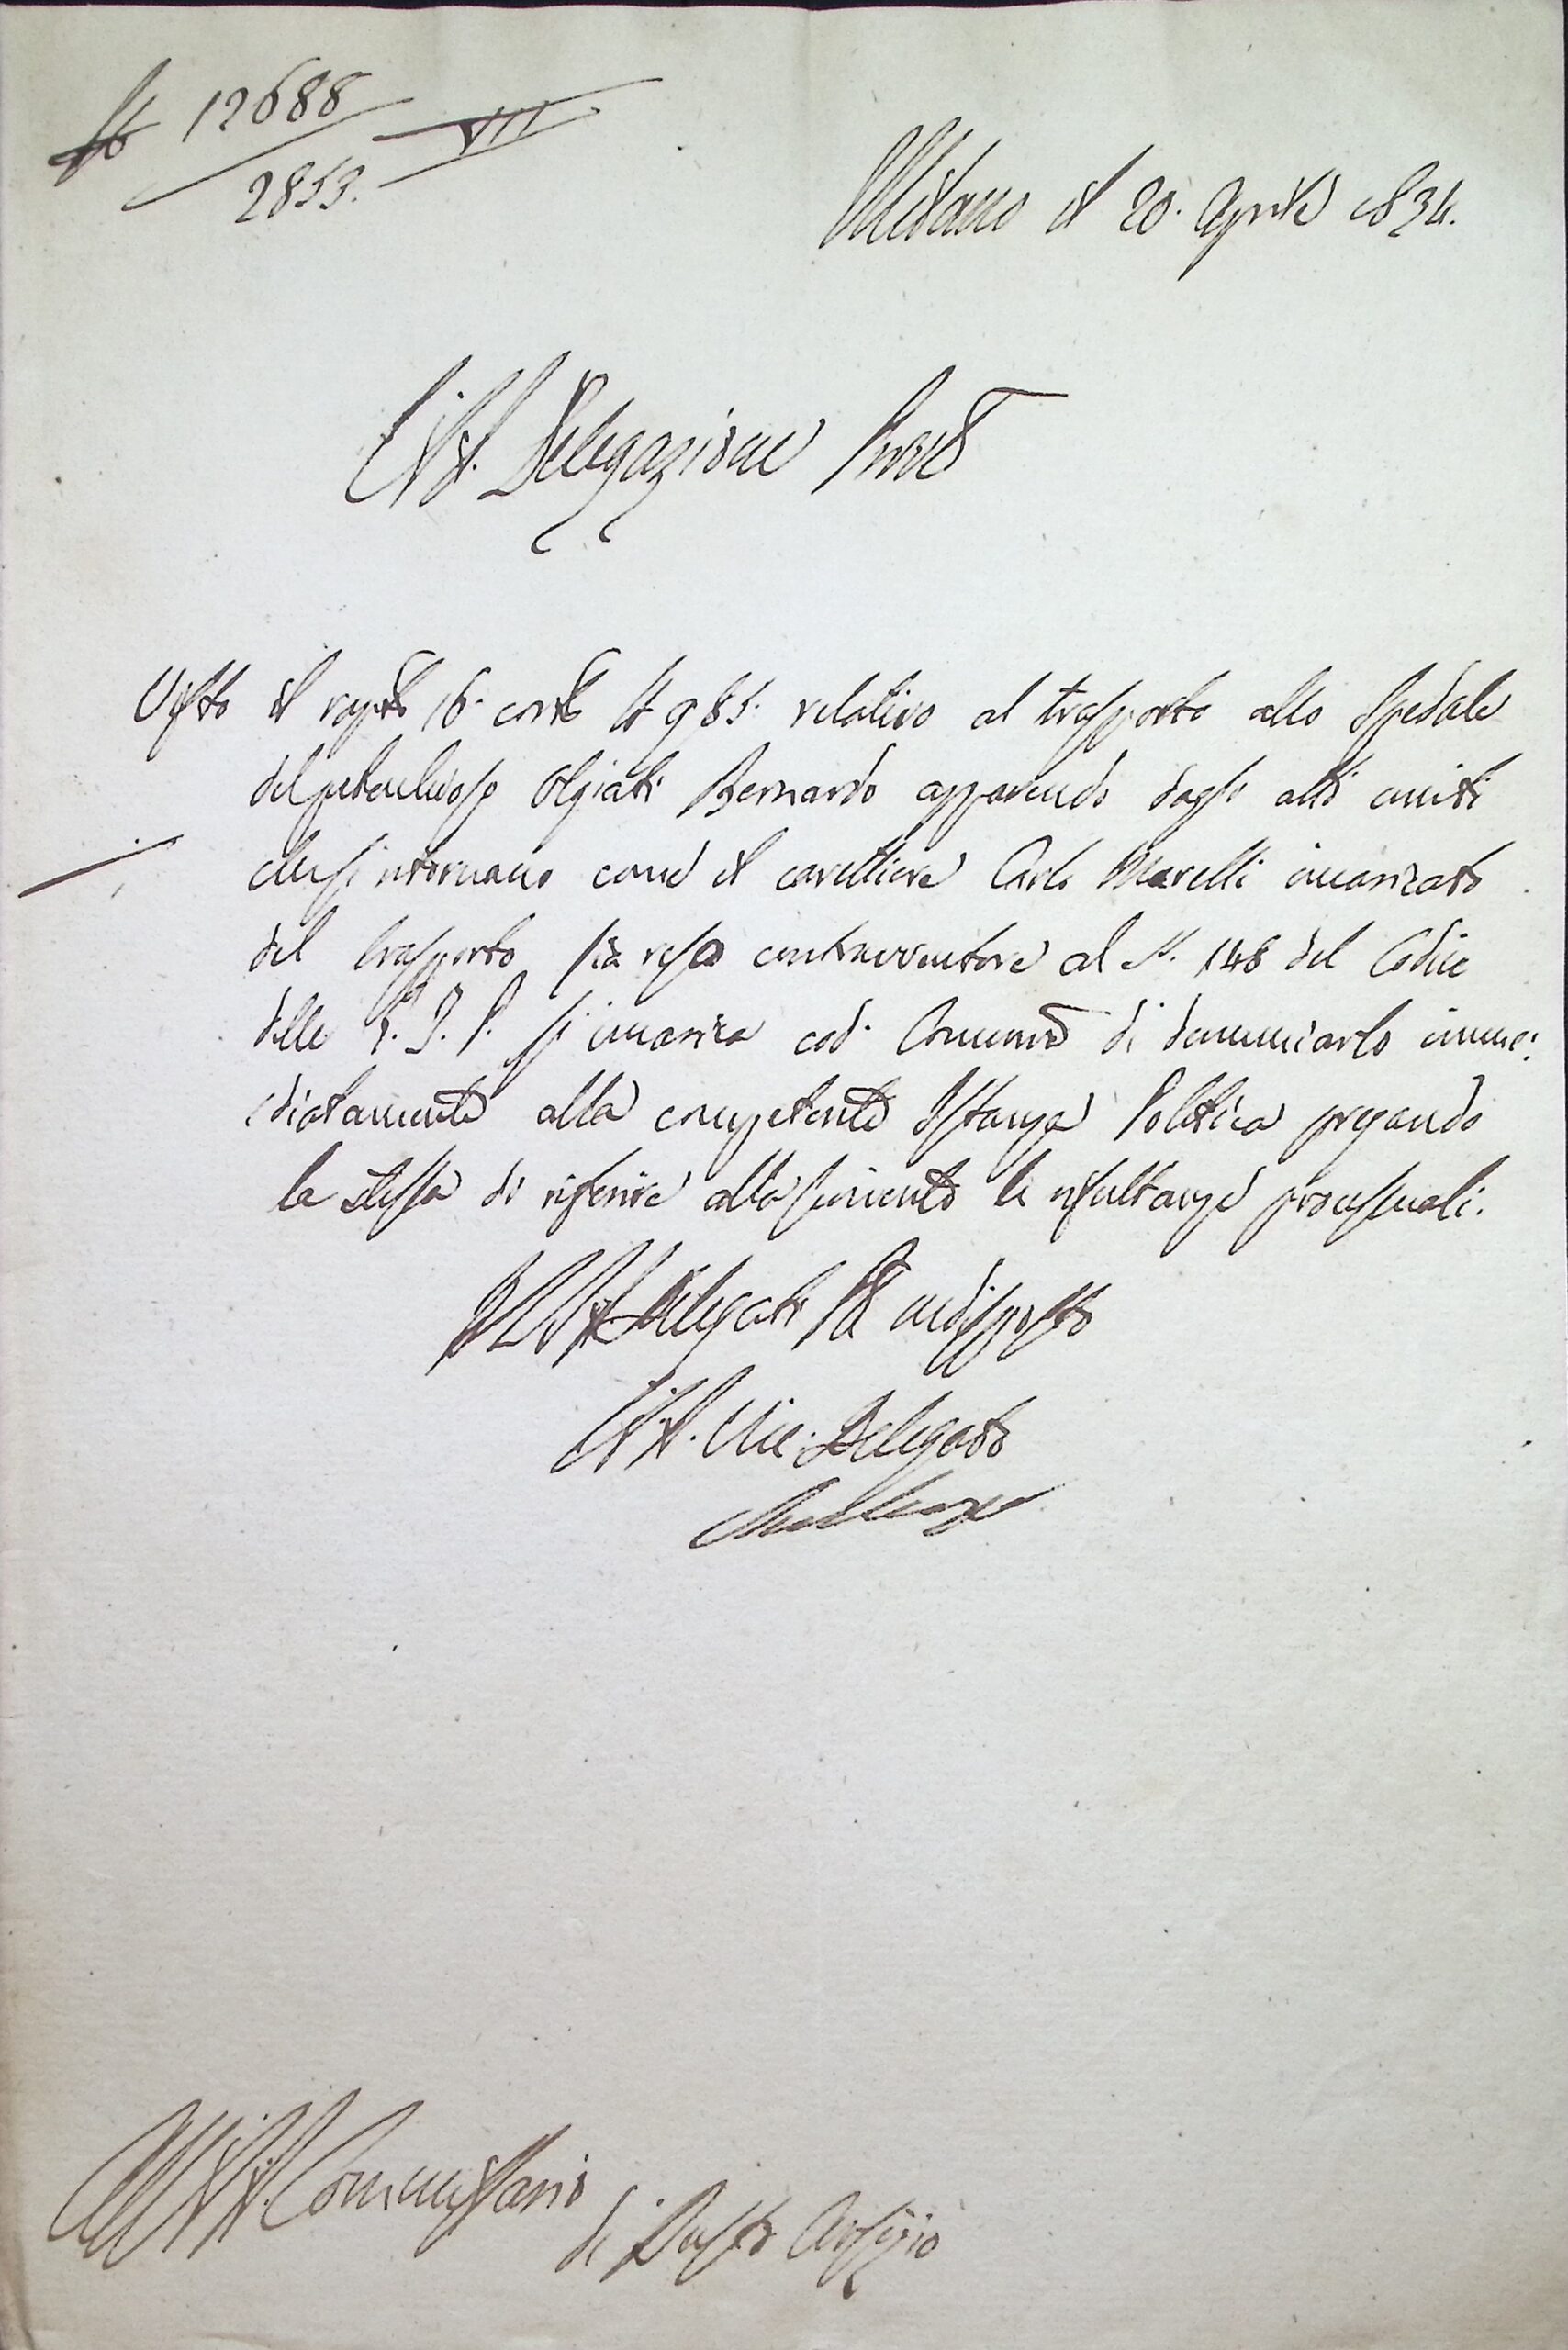 N 12688 VII
2853.
Milano il 20. Aprile 1834.
L'I. R. Delegazione Prov.le
Visto il rapp.to 16. corr.te N 985. relativo al trasporto allo Spedale
del petecchioso Olgiati Bernardo apparendo dagli atti uniti
che si ritornano come il carettiere Carlo Marelli incaricato
del trasporto sia reso contravventore al §. 148 del Codice
delle G. T. P. si incarica cod. Commis.o di denunciarlo imme:
diatamente alla competente Istanza Politica pregando
la stessa di riferire alla scrivente le risultanze processuali.
Pel I. R. Delegato P.le indisposto
L'I. R. Vice-Delegato
All' I. R. Commissario
di Busto Arsizio